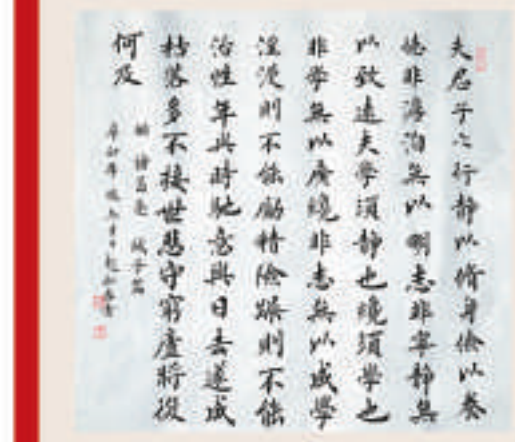 夫君子之行靜以脩身儉以養
德非澹泊無以明志非寧靜無
以致遠夫學須靜也纔須學也
非學無以廣纔非志無以成學
淫漫則不能勵精險躁則不能
治性年與時馳意與日去遂成
枯落多不接世悲守窮廬將復
何及
諸葛亮 誡子篇
辛卯年